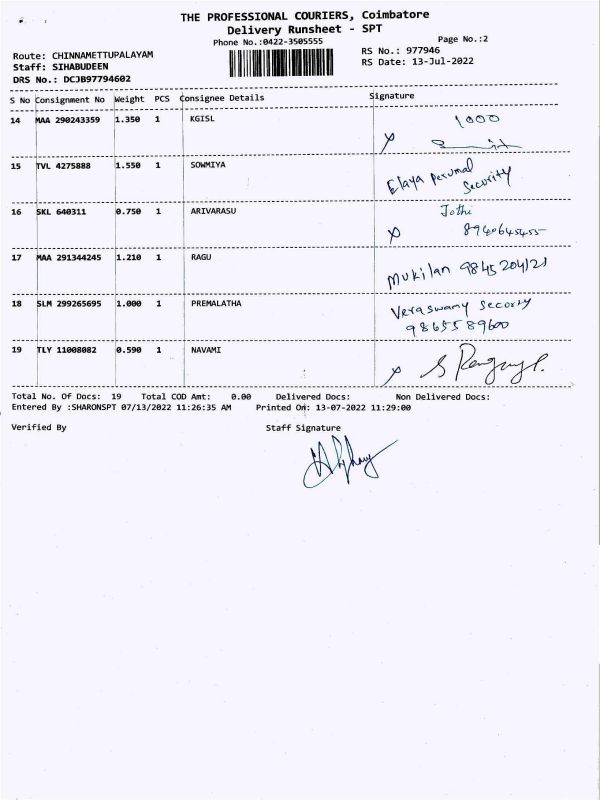 THE PROFESSIONAL COURIERS, Coimbatore
Delivery Runsheet - SPT
Phone No.:0422-3505555
Page No.:2
Route: CHINNAMETTUPALAYAM
RS No.: 977946
Staff: SIHABUDEEN
RS Date: 13-Jul-2022
DRS No.: DCJB97794602
S No Consignment No Weight PCS Consignee Details Signature
14 MAA 290243359 1.350 1 KGISL 1000
15 TVL 4275888 1.550 1 SOWMIYA Elaya Perumal
Security
16 SKL 640311 0.750 1 ARIVARASU Jothi
17 MAA 291344245 1.210 1 RAGU Mukilan
18 SLM 299265695 1.000 1 PREMALATHA Veraswamy Security
9865589600
19 TLY 11008082 0.590 1 NAVAMI
Total No. Of Docs: 19 Total COD Amt: 0.00 Delivered Docs: Non Delivered Docs:
Entered By :SHARONSPT 07/13/2022 11:26:35 AM Printed On: 13-07-2022 11:29:00
Verified By Staff Signature